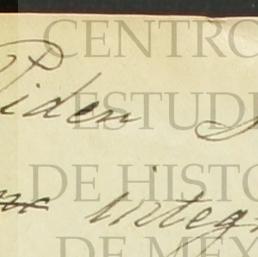 CENTRO
Piden
ESTUDI
DE HISTO
integr
DE MÉX